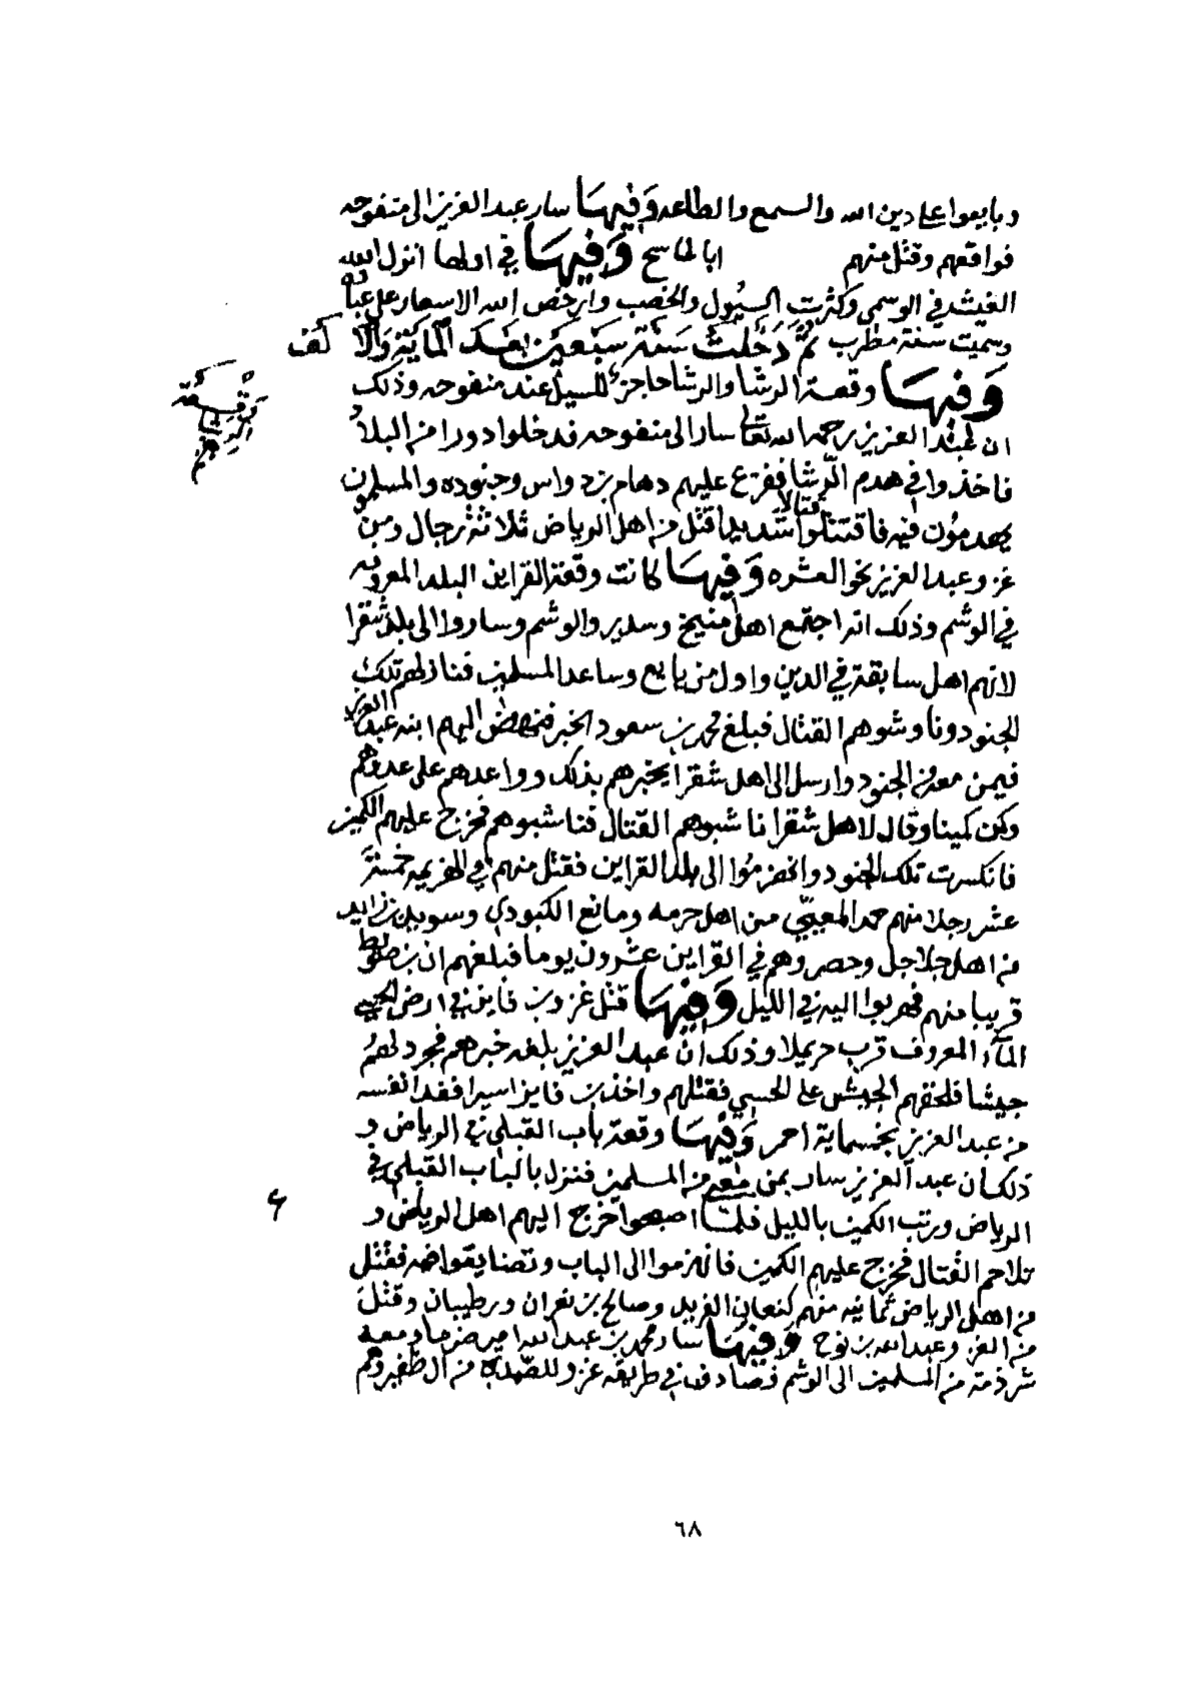 وبايعوا على دين الله والسمع والطاعه وَفِيهَا سار عبد العزيز الى منفوحه
فواقعهم وقتل منهم ابا لماسح وَفِيهَا في اولها انزل الله
الغيث في الوسمي وكثرت السيُول والخصب وارخص الله الاسعار على عباده
وسمّيت سنة مطرب ثُمَّ دَخَلتْ سَنَة سَبْعِيْن بَعْد المائة وَالالف
وَفِيهَا وقعة الرشا والرشا حاجز للسيل عند منفوحه وذلك
ان عبْد العزيز رحمه الله تعالى سار الى منفوحه فدخلوا دورا من البلد
فاخذوا في هدم الرّشا ففزع عليهم دهام بن دواس وجنوده والمسلمون
يهدموُن فيه فاقتتلوا قتالا شديدا قتل من اهل الرياض ثلاثة رجال ومن
غزو عبد العزيز نحو العشره وَفِيهَا كانت وقعة القراين البلد المعروفه
في الوشم وذلك انه اجتمع اهل منيخ وسدير والوشم وساروا الى بلد شقرا
لانهم اهل سابقة في الدين واول من بايع وساعد المسلمين فنازلهم تلك
الجنود وناوشوهم القتال فبلغ محمد بن سعود الخبر فنهض اليهم ابنه عبد العزيز
فيمن معه من الجنود وارسل الى اهل شقرا يخبرهم بذلك وواعدهم على عدوهم
وكمن كمينا وقال لاهل شقرا ناشبوهم القتال فناشبوهم فخرج عليهم الكمين
فانكسرت تلك الجنود وانهزمُوا الى بلد القراين فقتل منهم في الهزيمه خمسة
عشر رجلا منهم حمد المعيبي من اهل حرمه ومانع الكبودي وسويد بن زايد
من اهل جلاجل وحصروهم في القراين عشرون يوما فبلغهم ان بن
قريبا منهم فهربوا اليه في الليل وَفِيهَا قتل غزو بن فايز في ارض الحسي
المآء المعروف قرب حريملا وذلك ان عبد العزيز بلغه خبرهم فجرد لهمُ
جيشا فلحقهم الجيش على الحسي فقتلهم واخذ بن فايز اسيرا ففدا نفسه
من عبد العزيز بخمسماية احمر وَفِيْهَا وقعة باب القبلي في الرياض و
ذلك ان عبد العزيز سار بمن معه من المسلمين فنزل بالباب القبلي في
الرياض ورتب الكمين بالليل فلمّا اصبحوا خرج اليهم اهل الرياض و
تلاحم القتال فخرج عليهم الكمين فانهزموا الى الباب وتضايقوا فيه فقتل
من اهل الرياض ثمانيه منهم كنعان الفريد وصالح بن نغران وبرطيبان وقتل
من الغزو عبد الله بن نوح وَفِيْهَا سار محمد بن عبد الله امير ضرما ومعه
شرذمة من المسلمين الى الوشم فصادف في طريقه غزو للصّمدة من ال ظفير وهم
وَقعَة
الرشا
٦٨